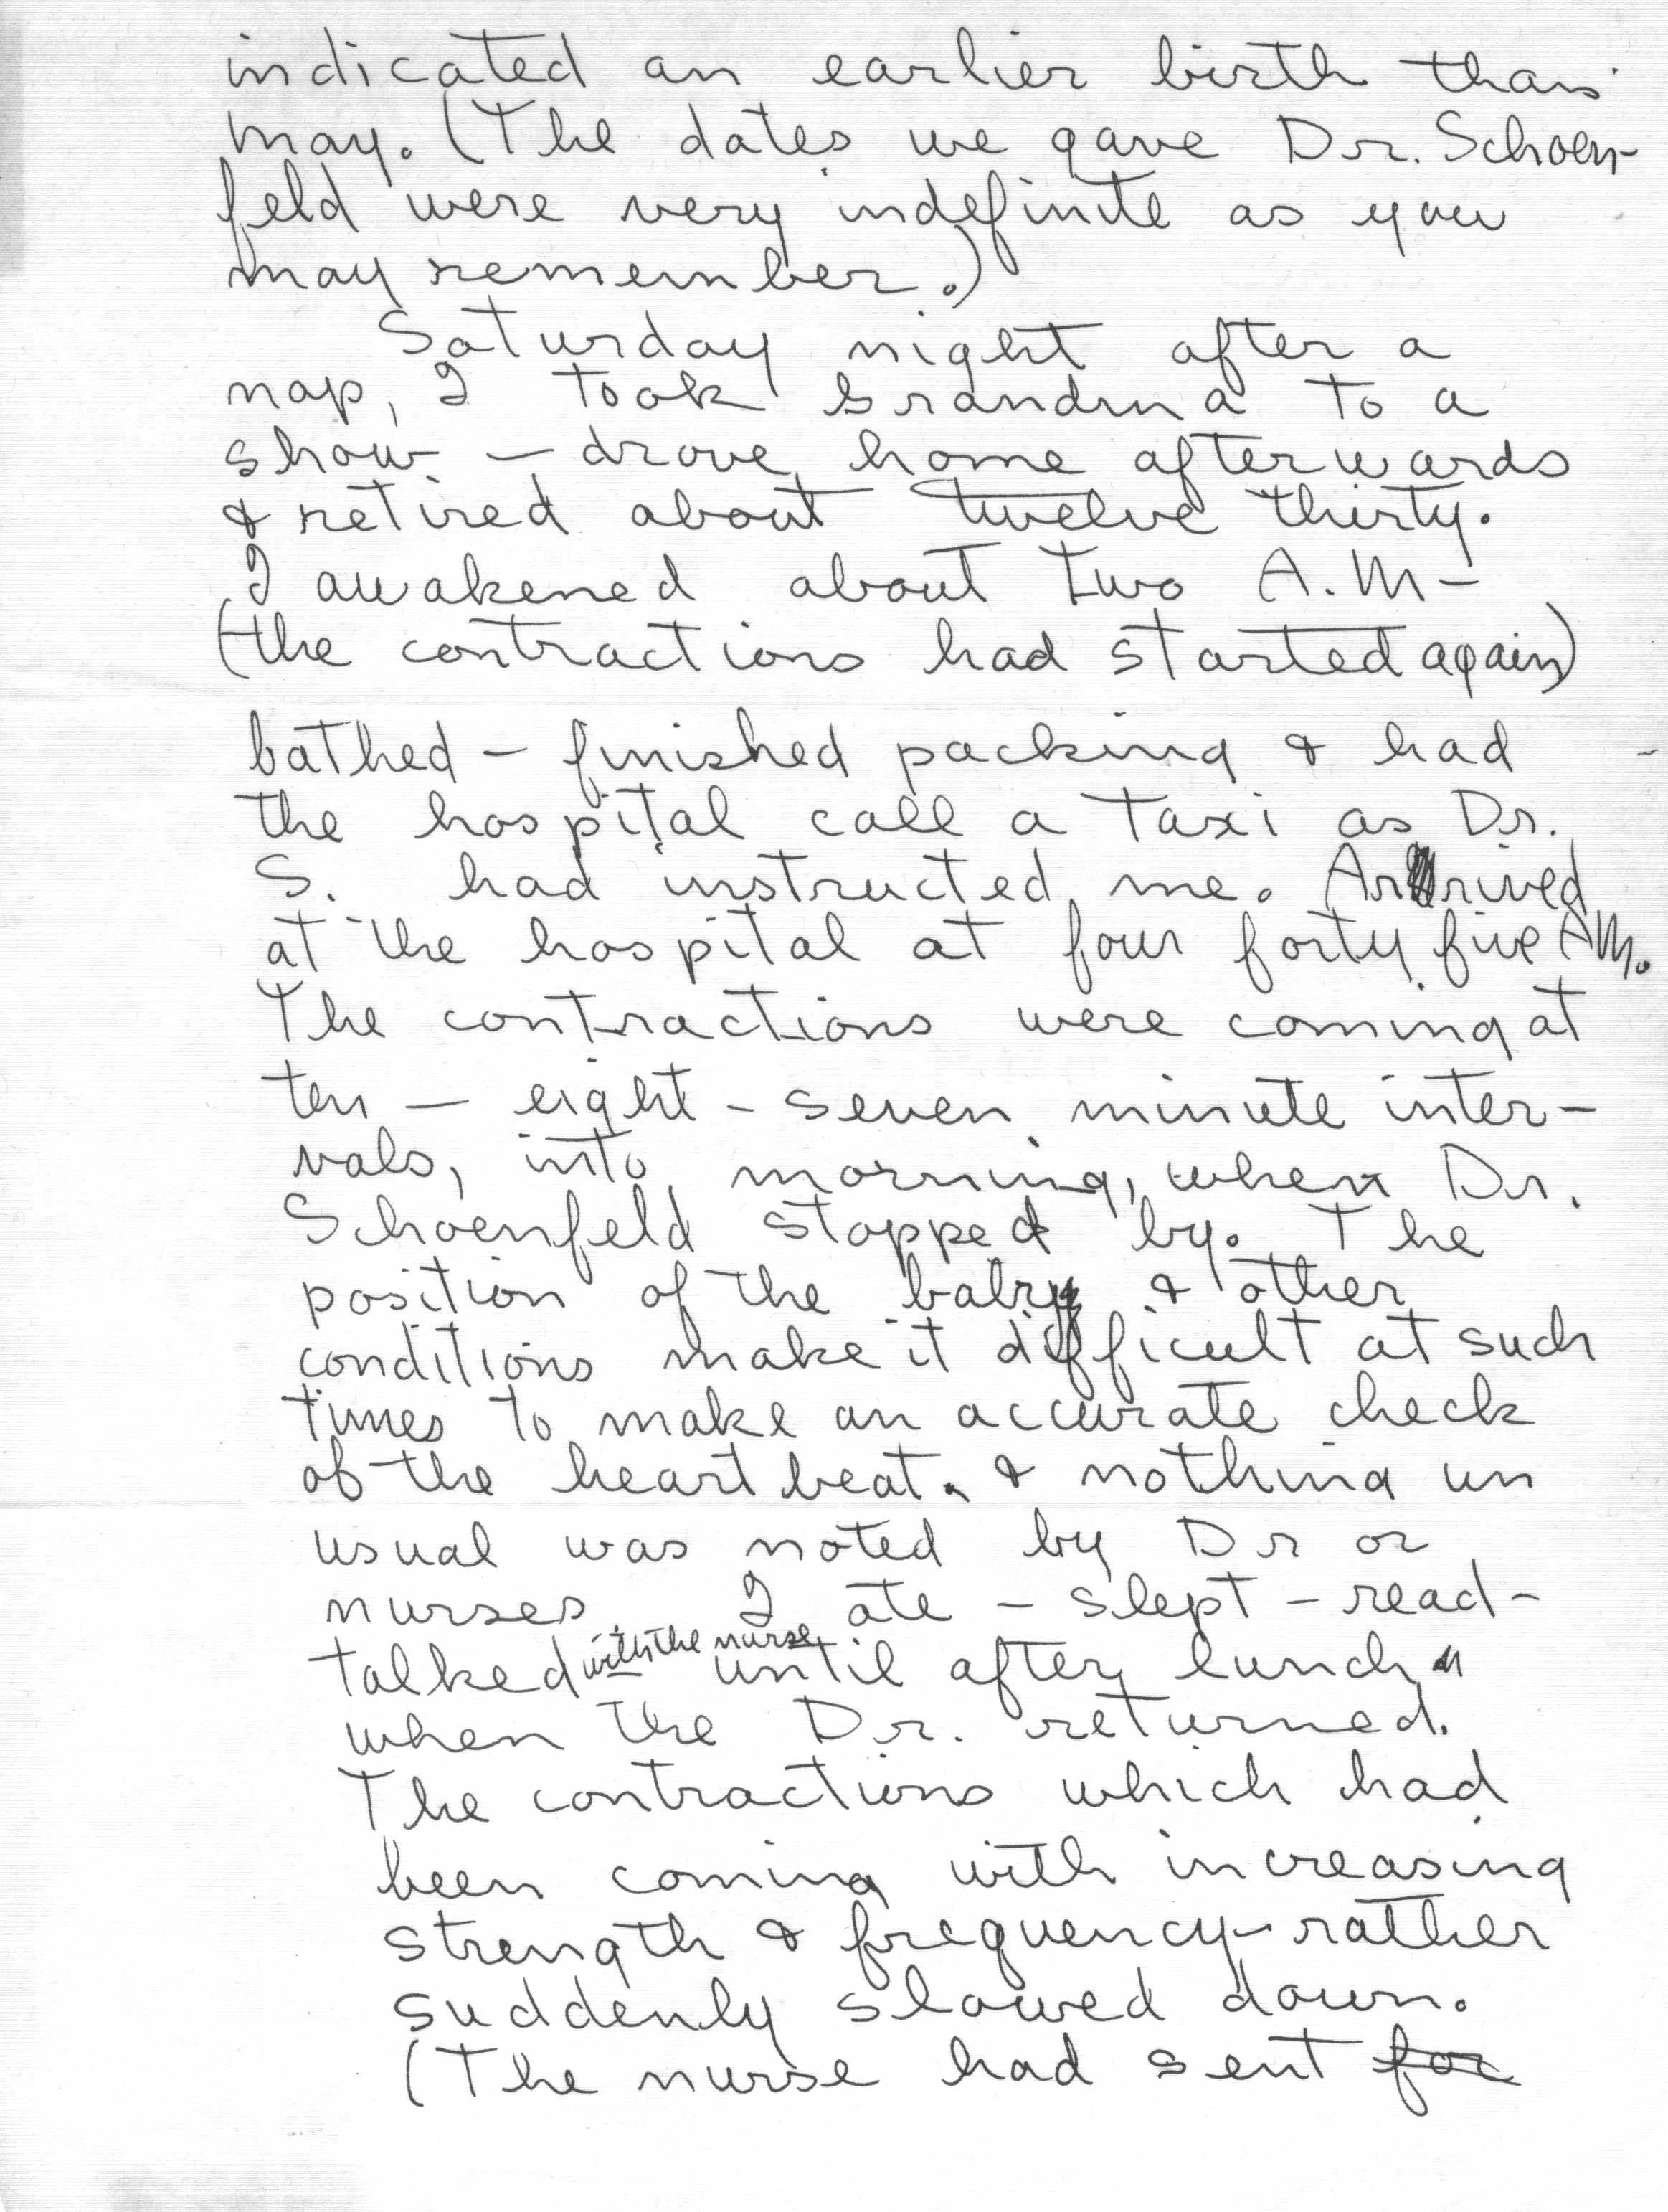 indicated an earlier birth than
May. (The dates we gave Dr. Schoen-
feld were very indefinite as you
may remember.)
Saturday night after a
nap, I took Grandma to a
show - drove home afterwards
& retired about twelve thirty.
I awakened about two A.M -
(the contractions had started again)
bathed - finished packing & had
the hospital call a taxi as Dr.
S. had instructed me. Arrived
at the hospital at four forty five AM.
The contractions were coming at
ten - eight - seven minute inter-
vals, into morning, when Dr.
Schoenfeld stopped by. The
position of the baby & other
conditions make it difficult at such
times to make an accurate check
of the heart beat. & nothing un
usual was noted by Dr or
nurses I ate - slept - read -
talked with the nurse until after lunch
when the Dr. returned.
The contractions which had
been coming with increasing
strength & frequency - rather
suddenly slowed down.
(The nurse had sent for